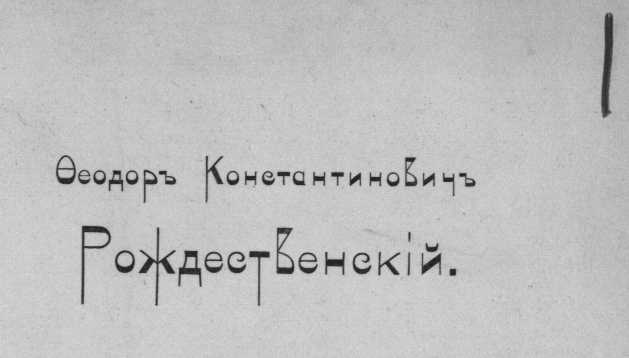 Ѳеодоръ Константиновичъ
Рождественскій.